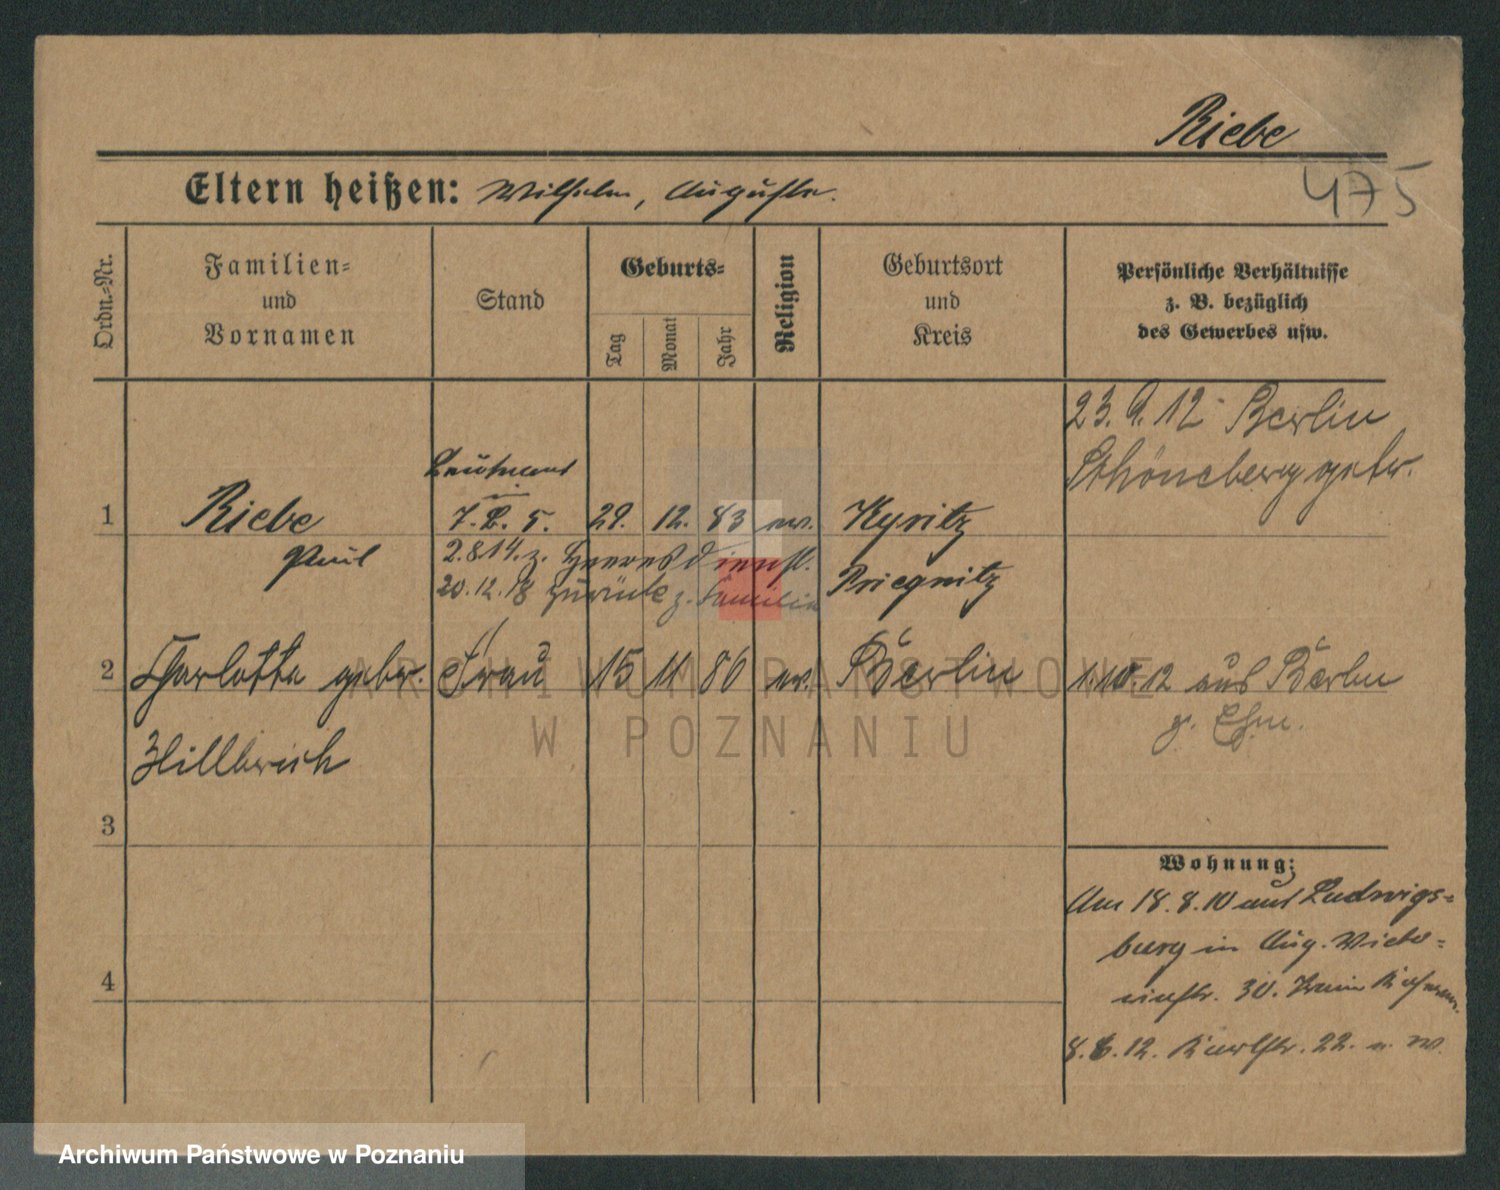 Riebe
475
Eltern heißen: Wilhelm, Auguste.
Ordn.=Nr.
Familien=
und
Vornamen
Stand
Geburts=
Tag
Monat
Jahr
Religion
Geburtsort
und
Kreis
Persönliche Verhältnisse
z. B. bezüglich
des Gewerbes usw.
23. 9. 12 Berlin
Schöneberg getr.
1
Riebe
Paul
Leutnant
29. 12. 83 ev.
2.8.14. z. Heeresdienst.
20.12.18 zurück z. Familie
Kyritz
Priegnitz
2
Charlotte gebr.
Frau
15 11 86 ev.
Berlin
1.10.12 aus Berlin
z. Ehe.
3
4
Wohnung:
Am 18. 8. 10 aus Ludwigs=
burg in Aug. Victo=
riastr. 30.
8. 6. 12. Karlstr. 22.
ARCHIWUM PAŃSTWOWE
W POZNANIU
Archiwum Państwowe w Poznaniu